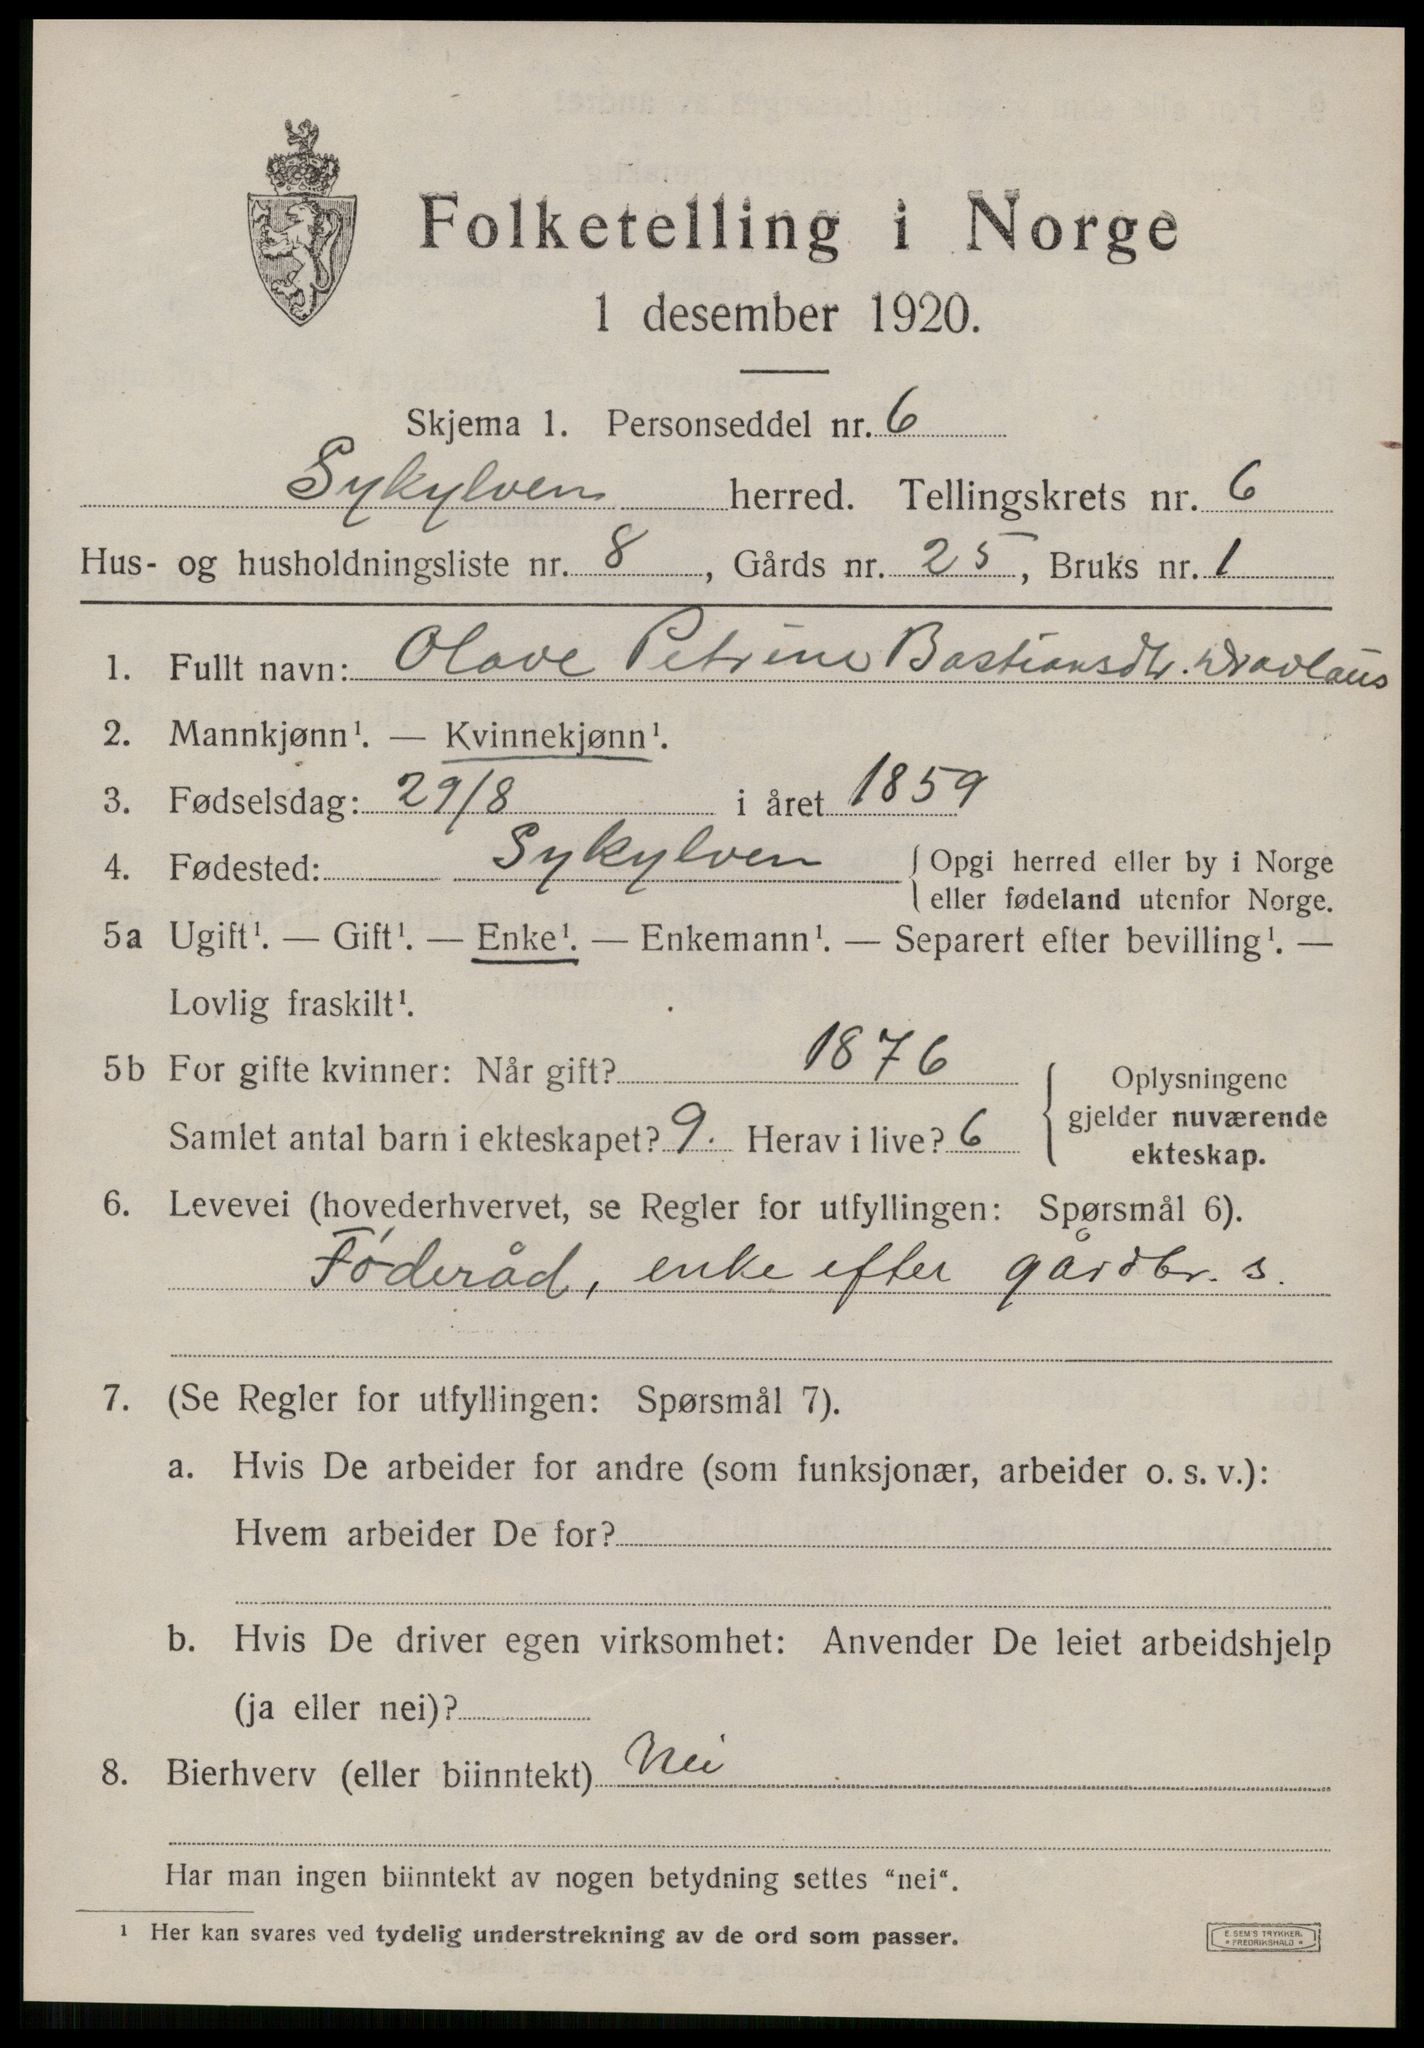 Folketelling i Norge
1 desember 1920.
Skjema 1. Personseddel nr. 6
Sykylven herred. Tellingskrets nr. 6
Hus- og husholdningsliste nr. 8, Gårds nr. 25, Bruks nr. 1
1. Fullt navn: Olave Petrine Bastiansdtr. Dravlaus
2. Mannkjønn¹. — Kvinnekjønn¹.
3. Fødselsdag: 29/8 i året 1859
4. Fødested: Sykylven { Opgi herred eller by i Norge
eller fødeland utenfor Norge.
5a Ugift¹. — Gift¹. — Enke¹. — Enkemann¹. — Separert efter bevilling¹. —
Lovlig fraskilt¹.
5b For gifte kvinner: Når gift? 1876
Samlet antal barn i ekteskapet? 9. Herav i live? 6
{ Oplysningene
gjelder nuværende
ekteskap.
6. Levevei (hovederhvervet, se Regler for utfyllingen: Spørsmål 6).
Føderåd, enke efter gårdbr. s.
7. (Se Regler for utfyllingen: Spørsmål 7).
a. Hvis De arbeider for andre (som funksjonær, arbeider o. s. v.):
Hvem arbeider De for?
b. Hvis De driver egen virksomhet: Anvender De leiet arbeidshjelp
(ja eller nei)?
8. Bierhverv (eller biinntekt) Nei
Har man ingen biinntekt av nogen betydning settes “nei“.
¹ Her kan svares ved tydelig understrekning av de ord som passer.
E. SEM'S TRYKKER.
* FREDRIKSHALD *